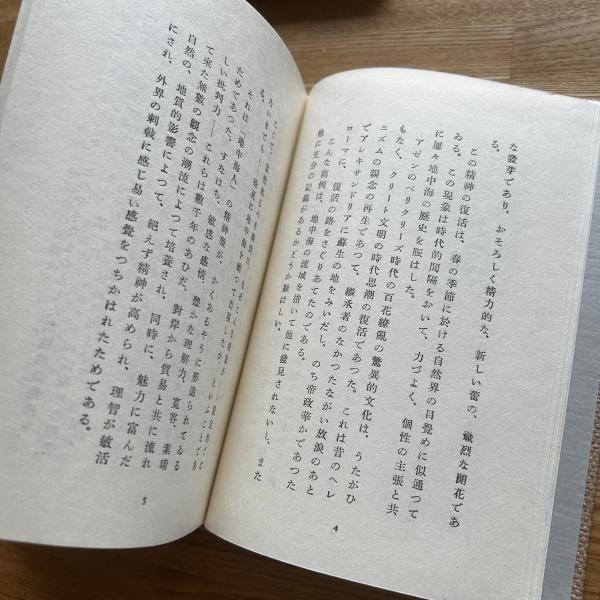 な發芽であり、おそろしく精力的な、新しい蕾の、熾烈な開花であ
る。
この精神の復活は、春の季節に於ける自然界の目覺めに似通つて
ゐる。この現象は時代的間隔をおいて、力づよく、個性の主張と共
に屡々地中海の歷史を賑はした。
アゼンのペリクリーズ時代の百花繚亂の驚異的文化は、うたがひ
もなく、クリート文明の時代思潮の復活であつた。これは昔のヘレ
ニズムの觀念の再生であつて、繼承者のなかつたながい放浪のあと
でアレキサンドリアに蘇生の地をみいだし、のち帝政華かであつた
ローマに、復活の路をさぐりあてたのである。
こんな前例は、地中海の流域を措いて他に發見されないし、また
他に充分の記錄があるかどうか疑はしい。
4
る。
それは「地中海人」の精神が、かくあるやうに形造られてゐる
ためであつた。すなはち、敏感な感情、豊かな理解力、寬容、素晴
しい批判力――これらは數千年のあひだ、對岸から貿易と共に流れ
て來た無數の觀念の潮流によつて培養され、同時に、魅力に富んだ
自然の、地質的影響によつて、絕えず精神が高められ、理智が敏活
にされ、外界の刺戟に感じ易い感覺をつちかはれたためである。
5